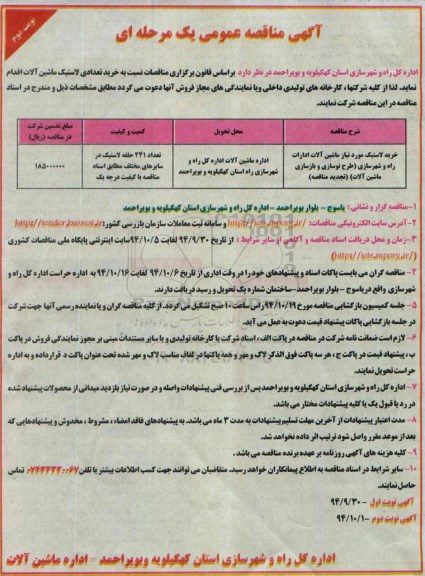 نوبت دوم
آگهی مناقصه عمومی یک مرحله ای
اداره کل راه و شهرسازی استان کهگیلویه و بویراحمد در نظر دارد براساس قانون برگزاری مناقصات نسبت به خرید تعدادی لاستیک ماشین آلات اقدام
نماید. لذا از کلیه شرکتها، کارخانه های تولیدی داخلی ویا نمایندگی های مجاز فروش آنها دعوت می گردد مطابق مشخصات ذیل و مندرج در اسناد
مناقصه در این مناقصه شرکت نمایند.
شرح مناقصه
محل تحویل
کمیت و کیفیت
مبلغ تضمین شرکت
در مناقصه (ریال)
خرید لاستیک مورد نیاز ماشین آلات ادارات
راه و شهرسازی (طرح نوسازی و بازسازی
ماشین آلات) (تجدید مناقصه)
اداره ماشین آلات اداره کل راه و
شهرسازی راه استان کهگیلویه و بویراحمد
تعداد ۲۴۱ حلقه لاستیک در
سایزهای مختلف مطابق اسناد
مناقصه با کیفیت درجه یک
۱۸۵۰۰۰۰۰۰
۱-مناقصه گزار و نشانی: یاسوج - بلوار بویراحمد - اداره کل راه و شهرسازی استان کهگیلویه و بویراحمد
۲-آدرس سایت الکترونیکی مناقصات: وسامانه ثبت معاملات سازمان بازرسی کشور:
۳-زمان و محل دریافت اسناد مناقصه و آگاهی از سایر شرایط: از تاریخ ۹۴/۹/۳۰ لغایت ۹۴/۱۰/۵ سایت اینترنتی پایگاه ملی مناقصات کشوری
۴- مناقصه گران می بایست پاکات اسناد و پیشنهادهای خود را در وقت اداری از تاریخ ۹۴/۱۰/۶ لغایت ۹۴/۱۰/۱۶ به اداره حراست اداره کل راه و
شهرسازی واقع دریاسوج - بلوار بویراحمد-ساختمان شماره یک تحویل و رسید دریافت دارند.
۵- جلسه کمیسیون بازگشایی مناقصه مورخ ۹۴/۱۰/۱۹ راس ساعت ۱۰ صبح تشکیل می گردد. از کلیه مناقصه گران و یا نماینده رسمی آنها جهت شرکت
در جلسه بازگشایی پاکات پیشنهاد قیمت دعوت به عمل می آید.
۶- لازم است ضمانت نامه شرکت در مناقصه در پاکت الف، اسناد شرکت یا کارخانه تولیدی و یا سایر مستندات مبنی بر مجوز نمایندگی فروش در پاکت
ب، پیشنهاد قیمت در پاکت ج، هر سه پاکت فوق الذکر لاک و مهر و همه پاکتها در لفاف مناسب لاک و مهر شده تحت عنوان پاکت د قرارداده و به اداره
حراست تحویل نمایند.
۷- اداره کل راه و شهرسازی استان کهگیلویه و بویراحمد پس از بررسی فنی پیشنهادات واصله و در صورت نیاز بازدید میدانی از محصولات پیشنهاد شده
در رد یا قبول یک یا کلیه پیشنهادات مختار می باشد.
۸- مدت اعتبار پیشنهادات از آخرین مهلت تسلیم پیشنهادات به مدت ۳ ماه می باشد. به پیشنهادهای فاقد امضاء، مشروط، مخدوش و پیشنهادهایی که
بعد از موعد مقرر واصل شود ترتیب اثر داده نخواهد شد.
۹- کلیه هزینه های آگهی روزنامه بر عهده برنده مناقصه می باشد.
۱۰- سایر شرایط در اسناد مناقصه به اطلاع پیمانکاران خواهد رسید. متقاضیان می توانند جهت کسب اطلاعات بیشتر با تلفن تماس
حاصل نمایند.
آگهی نوبت اول - ۹۴/۹/۳۰
آگهی نوبت دوم - ۹۴/۱۰/۱
اداره کل راه و شهرسازی استان کهگیلویه وبویراحمد - اداره ماشین آلات